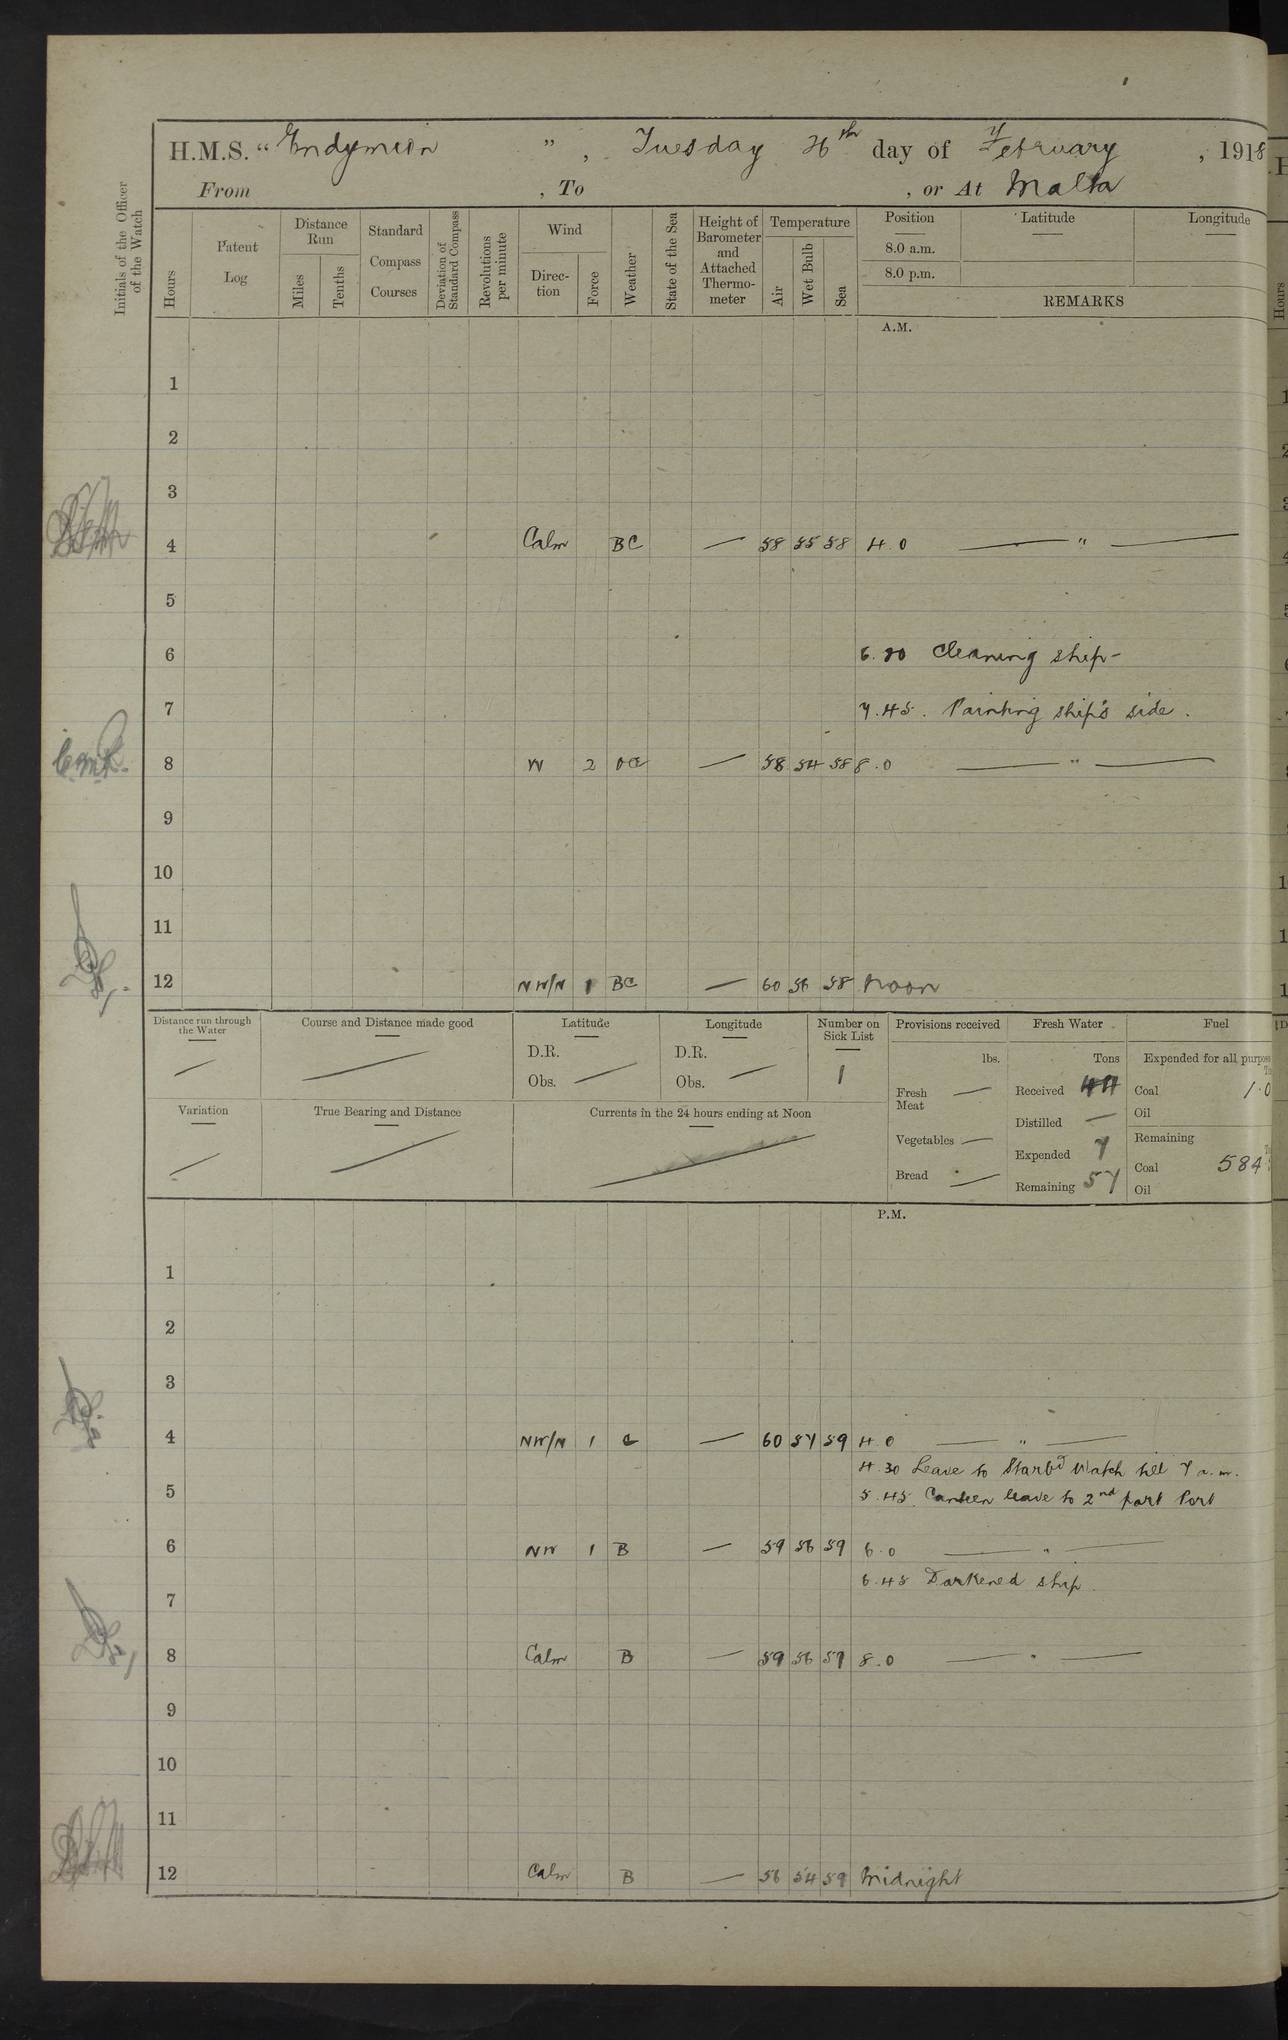 H.M.S. “Endymion ”, Tuesday 26th day of February, 1918
From , To , or At Malta
Initials of the Officer of the Watch
Hours
Patent Log
Distance Run
Miles
Tenths
Standard Compass Courses
Deviation of Standard Compass
Revolutions per minute
Wind
Direction
Force
Weather
State of the Sea
Height of Barometer and Attached Thermometer
Temperature
Air
Wet Bulb
Sea
Position Latitude Longitude
8.0 a.m.
8.0 p.m.
REMARKS
A.M.
1
2
3
4 Calm BC — 58 55 58 4.0 — " —
5
6 6.30 Cleaning ship-
7 7.45. Painting ship's side.
8 W 2 — 58 54 58 8.0 — " —
9
10
11
12 NW/N 1 BC — 60 56 58 Noon
Distance run through the Water
Course and Distance made good
Latitude
D.R.
Obs. —
Longitude
D.R.
Obs. —
Number on Sick List
1
Variation
True Bearing and Distance
Currents in the 24 hours ending at Noon
Provisions received
lbs.
Fresh Meat —
Vegetables —
Bread —
Fresh Water
Tons
Received
Distilled —
Expended 7
Remaining 57
Fuel
Expended for all purpose
Coal 1.0
Oil
Remaining
Coal 584
Oil
P.M.
1
2
3
4 NW/N 1 C — 60 57 59 4.0 — " —
4.30 Leave to Starbd Watch till 7 a.m.
5 5.45. Canteen leave to 2nd part Port
6 NW 1 B — 59 56 59 6.0 — " —
6.45 Darkened ship.
7
8 Calm B — 59 56 59 8.0 — " —
9
10
11
12 Calm B — 56 54 59 Midnight